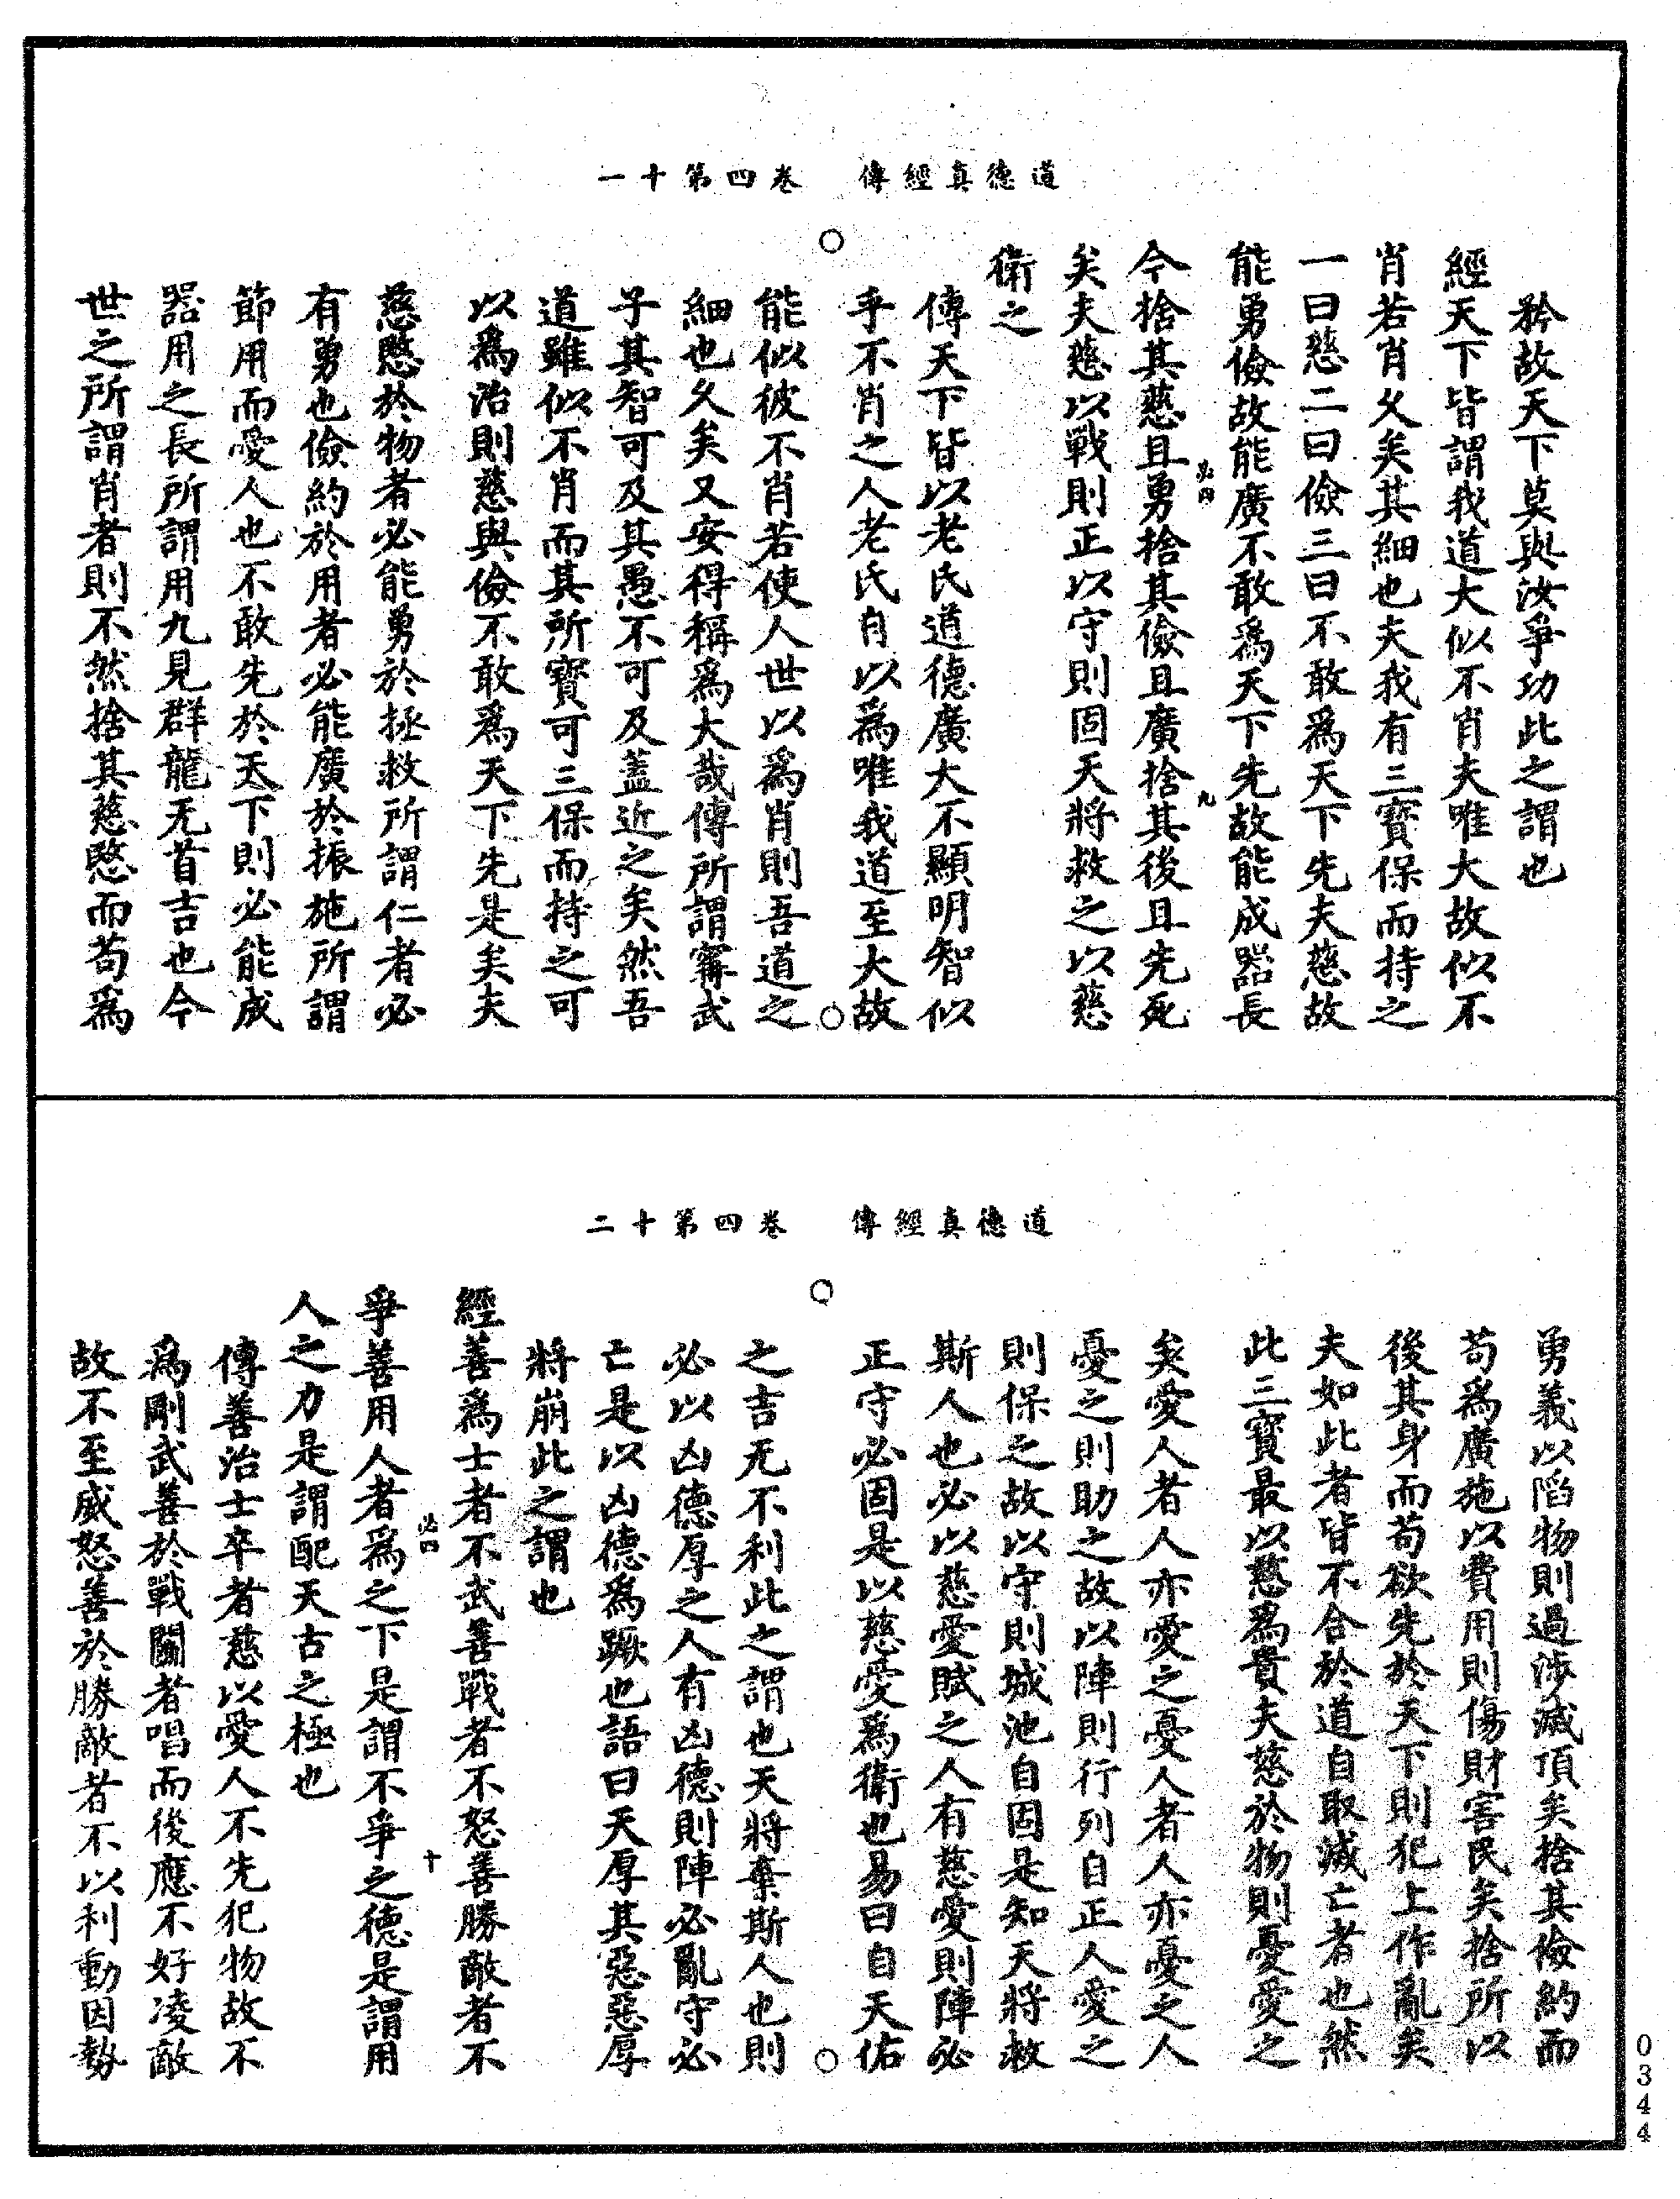 道德真經傳　卷四第十一
矜故天下莫與汝爭功此之謂也
經天下皆謂我道大似不肖夫唯大故似不
肖若肖久矣其細也夫我有三寶保而持之
一曰慈二曰儉三曰不敢為天下先夫慈故
能勇儉故能廣不敢為天下先故能成器長
必四　九
今捨其慈且勇捨其儉且廣捨其後且先死
矣夫慈以戰則正以守則固天將救之以慈
衛之
傳天下皆以老氏道德廣大不顯明智似
乎不肖之人老氏自以為唯我道至大故
能似彼不肖若使人世以為肖則吾道之
細也久矣又安得稱為大哉傳所謂甯武
子其智可及其愚不可及蓋近之矣然吾
道雖似不肖而其所寶可三保而持之可
以為治則慈與儉不敢為天下先是矣夫
慈愍於物者必能勇於拯救所謂仁者必
有勇也儉約於用者必能廣於振施所謂
節用而愛人也不敢先於天下則必能成
器用之長所謂用九見群龍无首吉也今
世之所謂肖者則不然捨其慈愍而苟為
道德真經傳　卷四第十二
勇義以陷物則過涉滅頂矣捨其儉約而
苟為廣施以費用則傷財害民矣捨所以
後其身而苟欲先於天下則犯上作亂矣
夫如此者皆不合於道自取滅亡者也然
此三寶最以慈為貴夫慈於物則憂愛之
矣愛人者人亦愛之憂人者人亦憂之人
憂之則助之故以陣則行列自正人愛之
則保之故以守則城池自固是知天將救
斯人也必以慈愛賦之人有慈愛則陣必
正守必固是以慈愛為衛也易曰自天佑
之吉无不利此之謂也天將棄斯人也則
必以凶德厚之人有凶德則陣必亂守必
亡是以凶德為蹶也語曰天厚其惡惡厚
將崩此之謂也
經善為士者不武善戰者不怒善勝敵者不
必四　十
爭善用人者為之下是謂不爭之德是謂用
人之力是謂配天古之極也
傳善治士卒者慈以愛人不先犯物故不
為剛武善於戰鬭者唱而後應不好凌敵
故不至威怒善於勝敵者不以利動因勢
0344